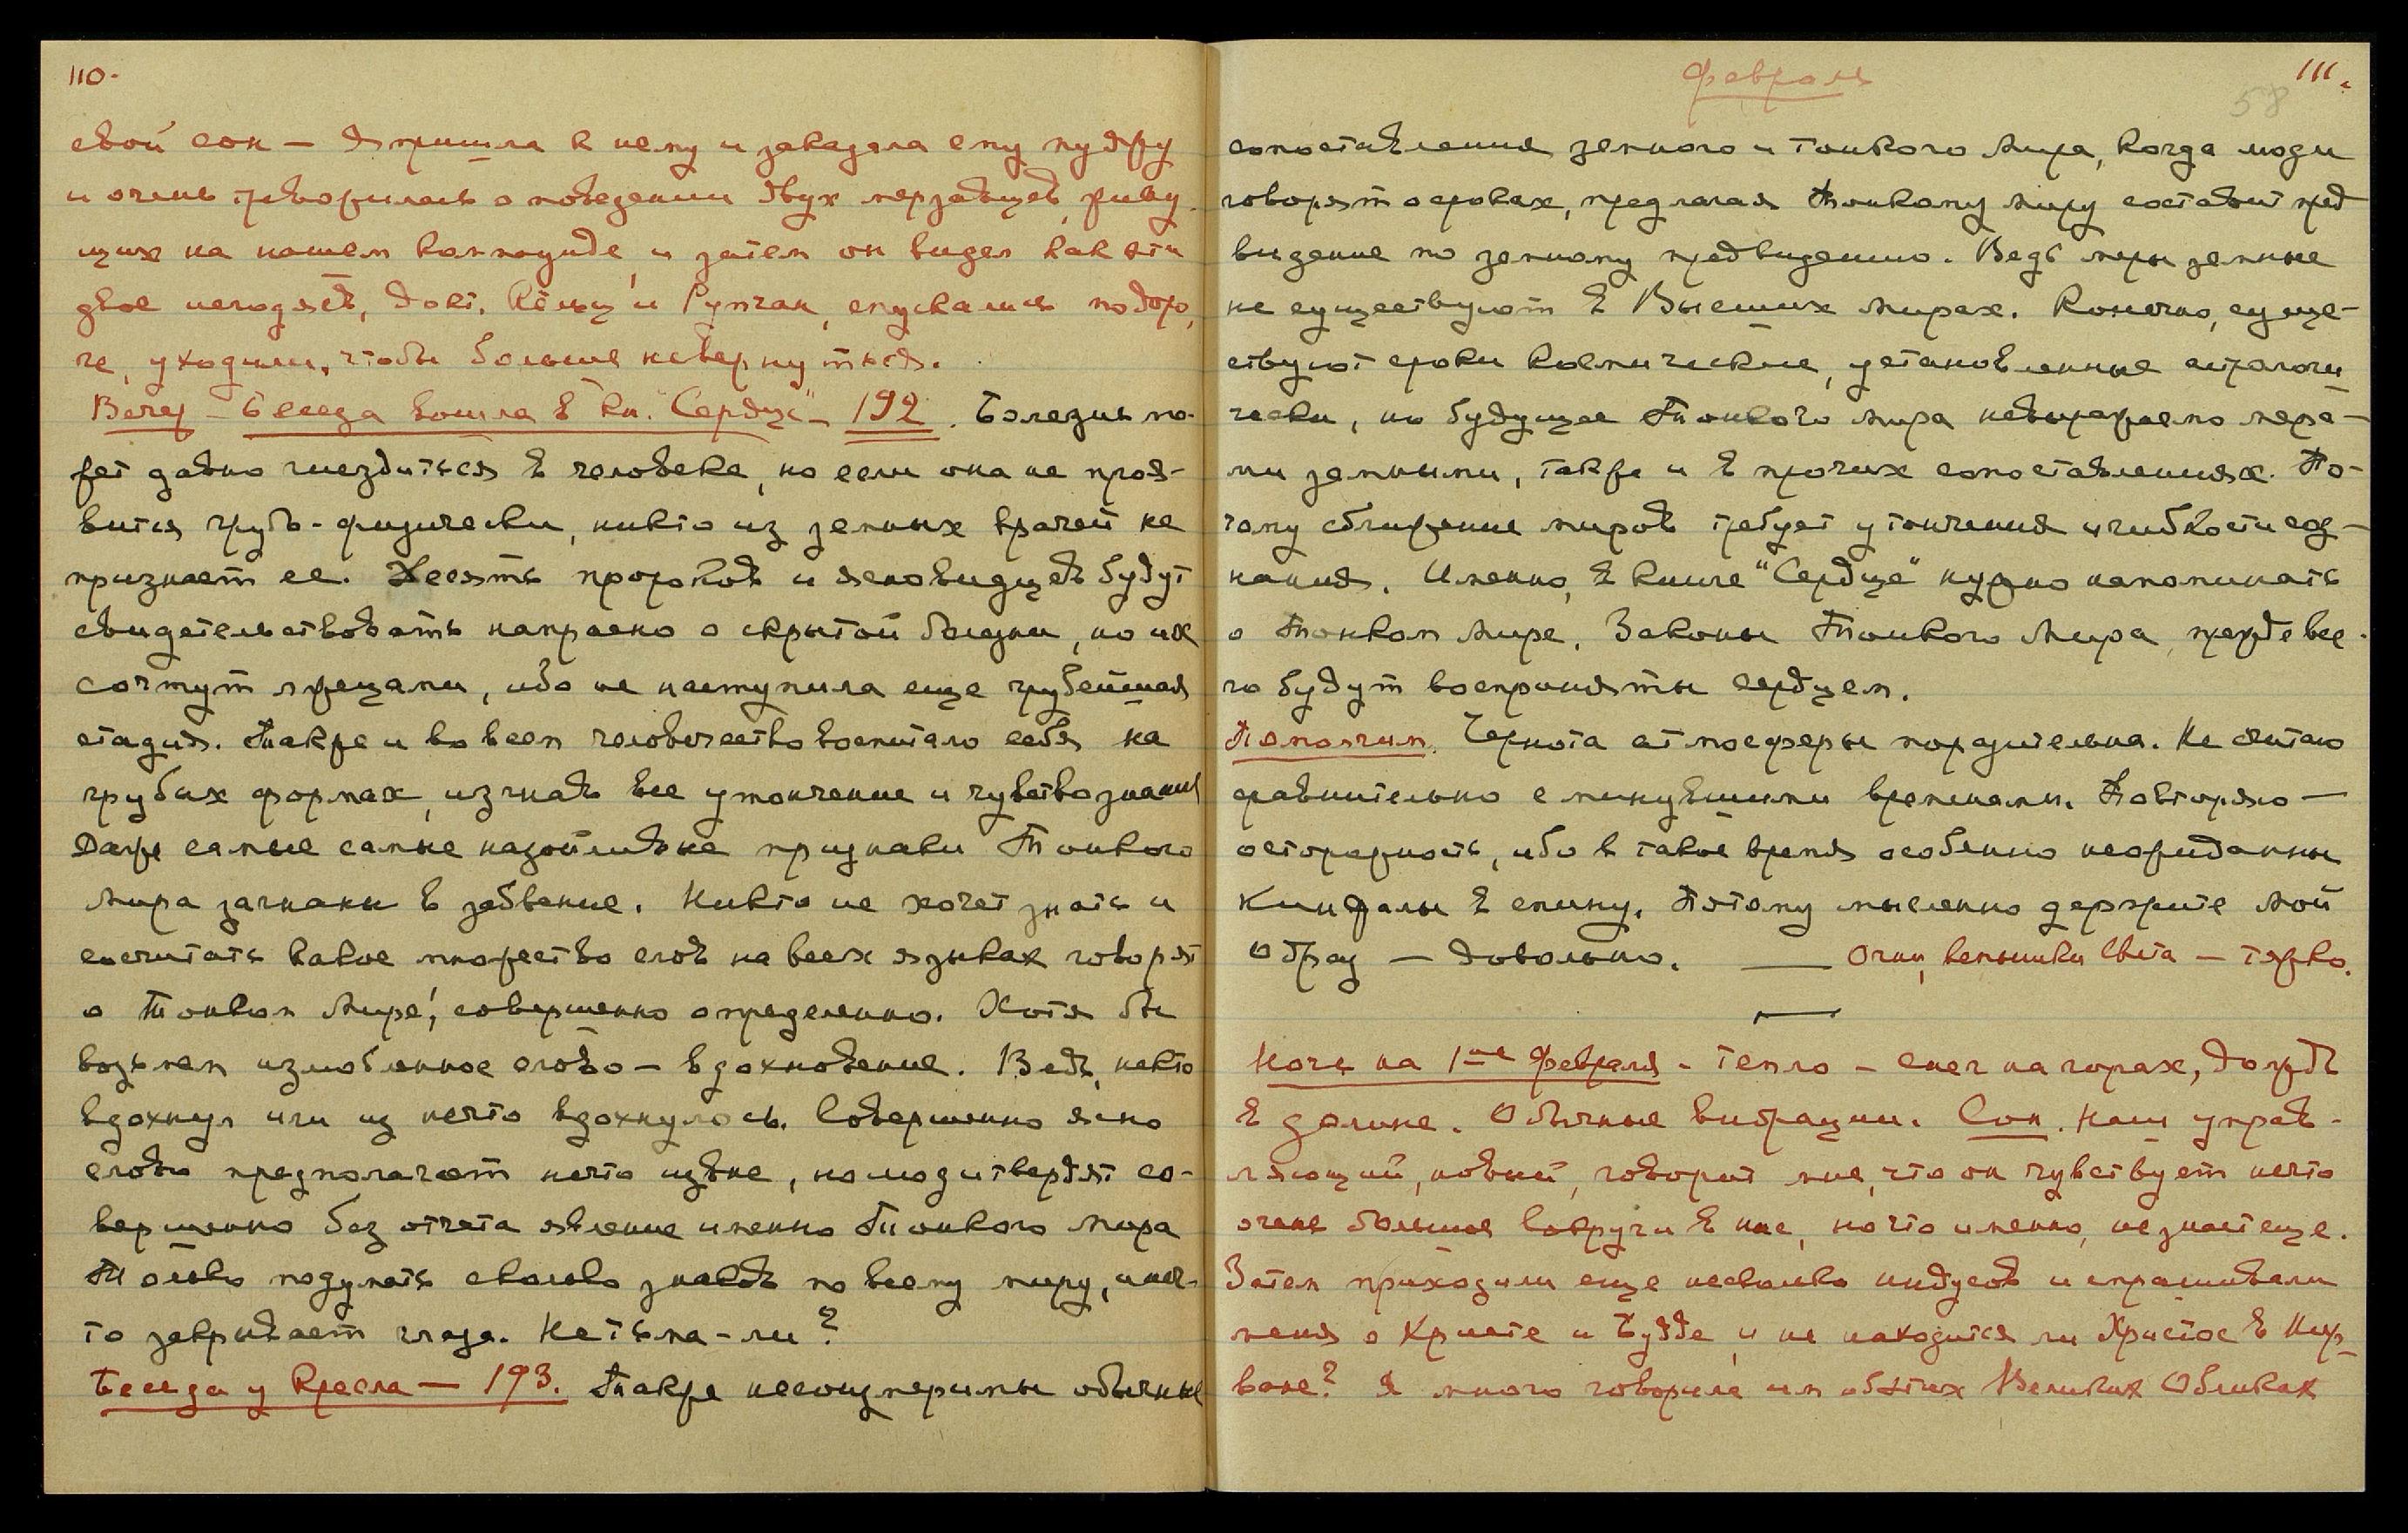 110.
свой сон — Я пришла к нему и заказала ему пудру
и очень тревожилась о поведении двух мерзавцев, живу
щих на нашем компаунде, и затем он видел как эти
двое негодяев, Докт. Кёльц и Румчан, спускались по доро,
ге, уходили, чтобы больше не вернуться.
Вечер – Беседа вошла в кн. "Сердце" – 192. Болезнь мо-
жет давно гнездиться в человеке, но если она не проя-
вится грубо-физически, никто из земных врачей не
признает ее. Десять пророков и ясновидцев будут
свидетельствовать напрасно о скрытой болезни, но их
сочтут лжецами, ибо не наступила еще грубейшая
стадия. Также и во всем человечество воспитало себя на
грубых формах, изгнав все утончение и чувствознание
Даже самые самые назойливые признаки Тонкого
Мира загнаны в забвение. Никто не хочет знать и
сосчитать какое множество слов на всех языках говорят
о Тонком Мире, совершенно определенно. Хотя бы
возьмем излюбленное слово – вдохновение. Ведь, некто
вдохнул или из нечто вдохнулось. Совершенно ясно
слово предполагает нечто извне, но люди твердят со-
вершенно без отчета явление именно Тонкого Мира
Только подумать сколько знаков по всему миру, и кто-
то закрывает глаза. Не тьма-ли?
Беседа у Кресла — 193. Также несоизмеримы обычные
Февраль
111.
58
сопоставления земного и Тонкого Мира, когда люди
говорят о сроках, предлагая Тонкому Миру составит пред
видение по земному предвидению. Ведь меры земные
не существуют в Высших Мирах. Конечно, суще-
ствуют сроки космические, установленные астрологи
чески, но будущее Тонкого Мира невыражаемо мера-
ми земными, также и в прочих сопоставлениях. По-
тому сближение миров требует утончения и гибкости соз-
нания. Именно, в книге "Сердце" нужно напоминать
о Тонком Мире. Законы Тонкого Мира, прежде все-
го будут восприняты сердцем.
Помолчим. Чернота атмосферы поразительна. Не считаю
сравнительно с минувшими временами. Повторяю —
осторожность, ибо в такое время особенно неожиданны
кинжалы в спину. Потому мысленно держите Мой
Образ — довольно. — Огни, вспышки Света — тяжко.
Ночь на 1ое Февраля – Тепло – снег на горах, дождь
в долине. Обычные вибрации. Сон. Наш управ-
ляющий, новый, говорит мне, что он чувствует нечто
очень большое вокруг и в нас, но что именно, не знает еще.
Затем приходили еще несколько индусов и спрашивали
меня о Христе и Будде, и не находится ли Христос в Нир-
ване? Я много говорила им об этих Великих Обликах